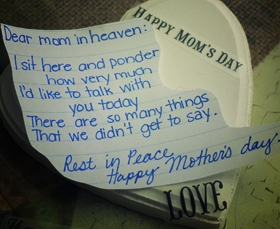 HAPPY MOM'S DAY
Dear mom in heaven:
I sit here and ponder
how very much
I'd like to talk with
you today
There are so many things
That we didn't get to say.
Rest in Peace
Happy Mother's day.
LOVE